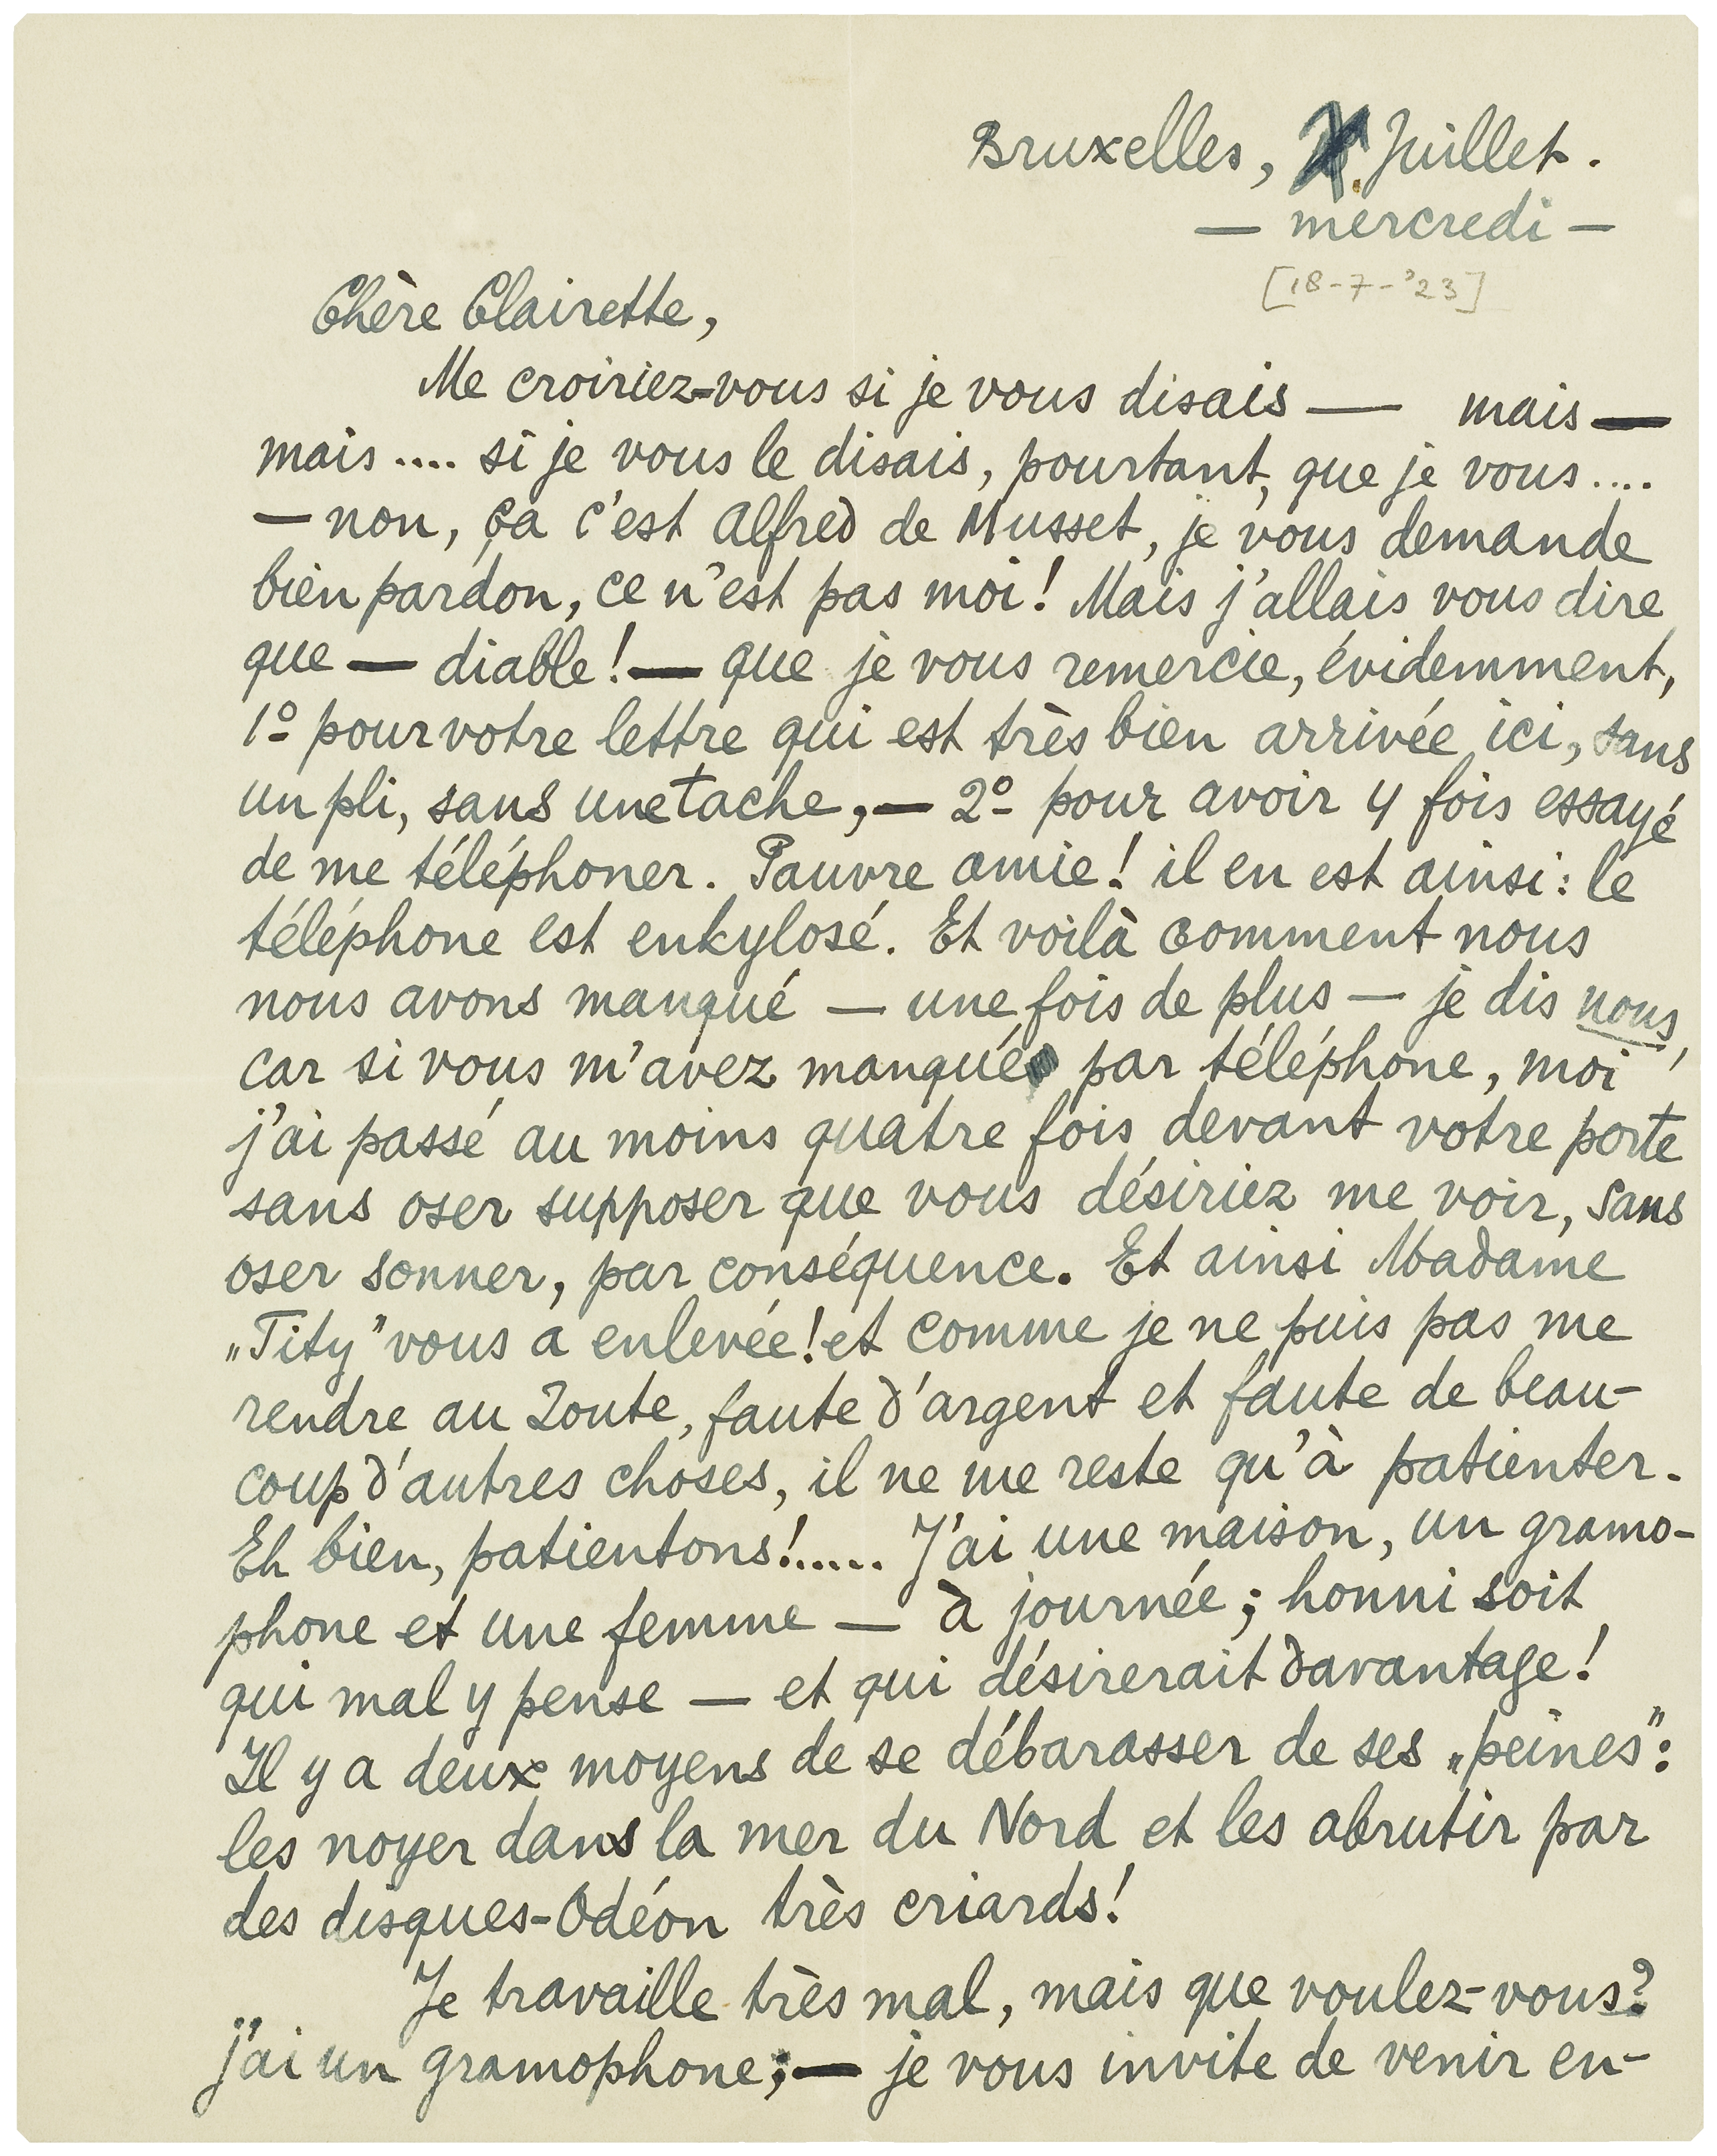 Bruxelles, Juillet.
— mercredi —
[18-7-'23]
Chère Clairette,
Me croiriez-vous si je vous disais — mais —
mais .... si je vous le disais, pourtant, que je vous ....
— non, ça c'est Alfred de Musset, je vous demande
bien pardon, ce n'est pas moi! Mais j'allais vous dire
que — diable! — que je vous remercie, évidemment,
1º pour votre lettre qui est très bien arrivée ici, sans
un pli, sans une tache, — 2º pour avoir 4 fois essayé
de me téléphoner. Pauvre amie! il en est ainsi: le
téléphone est enkylosé. Et voilà comment nous
nous avons manqué — une fois de plus — je dis nous,
car si vous m'avez manqué par téléphone, moi
j'ai passé au moins quatre fois devant votre porte
sans oser supposer que vous désiriez me voir, sans
oser sonner, par conséquence. Et ainsi Madame
„Tity" vous a enlevée! et comme je ne puis pas me
rendre au Zoute, faute d'argent et faute de beau-
coup d'autres choses, il ne me reste qu'à patienter.
Eh bien, patientons!..... J'ai une maison, un gramo-
phone et une femme — à journée; honni soit
qui mal y pense — et qui désirerait davantage!
Il y a deux moyens de se débarasser de ses „peines":
les noyer dans la mer du Nord et les abrutir par
des disques-Odéon très criards!
Je travaille très mal, mais que voulez-vous?
j'ai un gramophone; — je vous invite de venir en-